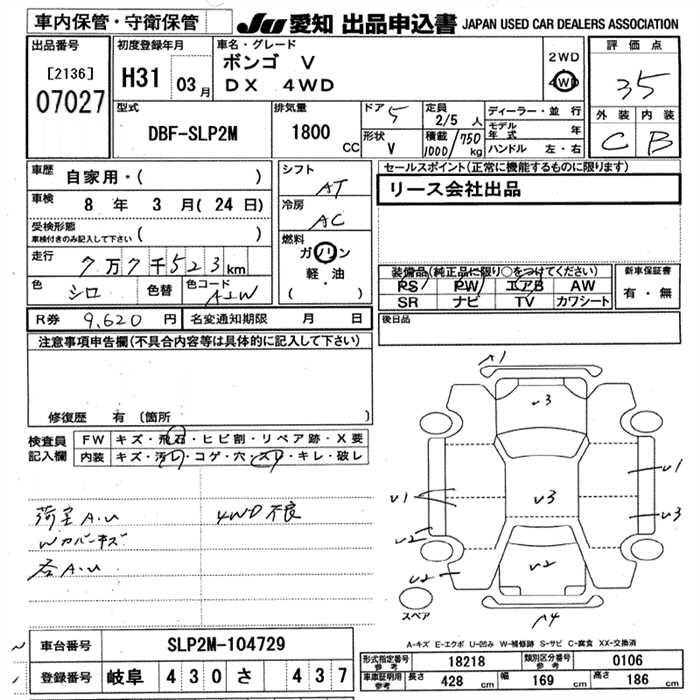 車内保管・守衛保管
JU 愛知 出品申込書 JAPAN USED CAR DEALERS ASSOCIATION
出品番号
[2136]
07027
初度登録年月
H31 03月
車名・グレード
ボンゴ V
DX 4WD
2WD
4WD
評価点
35
外装 内装
C B
型式
DBF-SLP2M
排気量
1800 CC
ドア 5
形状 V
定員 2/5 人
積載 1000/750 kg
ディーラー・並行
モデル年式 年
ハンドル 左・右
車歴 自家用・( )
車検 8 年 3 月( 24 日)
受検形態
車検付きのみ記入して下さい ( )
走行 7万7千523km
色 シロ 色替 色コード A2W
シフト
AT
冷房
AC
燃料
ガソリン
軽・油
( )
セールスポイント(正常に機能するものに限ります)
リース会社出品
装備品(純正品に限り○をつけてください)
PS PW エアB AW
SR ナビ TV カワシート
新車保証書
有・無
R券 9,620 円 名変通知期限 月 日
後日品
注意事項申告欄(不具合内容等は具体的に記入して下さい)
修復歴 有〔箇所 〕
検査員記入欄
FW キズ・飛石・ヒビ割・リペア跡・X要
内装 キズ・汚レ・コゲ・穴・スレ・キレ・破レ
荷室A.U 4WD不良
Wカバーキズ
各A.U
A1
U3
U1
U1
U3
U3
U2
U2
U2
A4
スペア
A-キズ E-エクボ U-凹み W-補修跡 S-サビ C-腐食 XX-交換済
車台番号 SLP2M-104729
登録番号 岐阜 430 さ 437
形式指定番号 参考 18218 類別区分番号 参考 0106
車庫証明用 参考 長さ 428 cm 幅 169 cm 高さ 186 cm